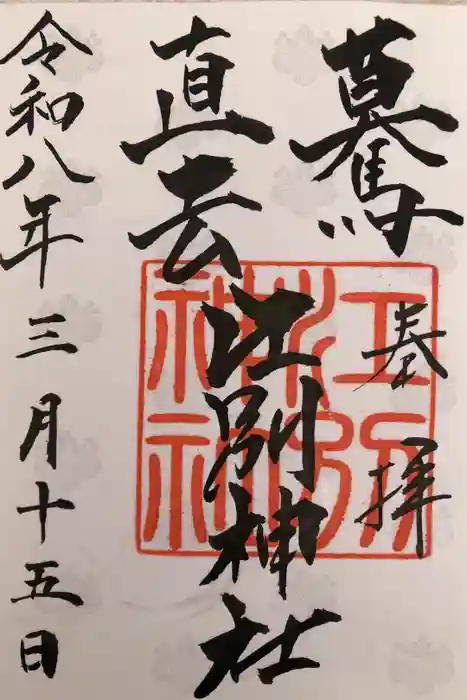 驀
直去
奉拝
江別神社
令和八年三月十五日
江別神社